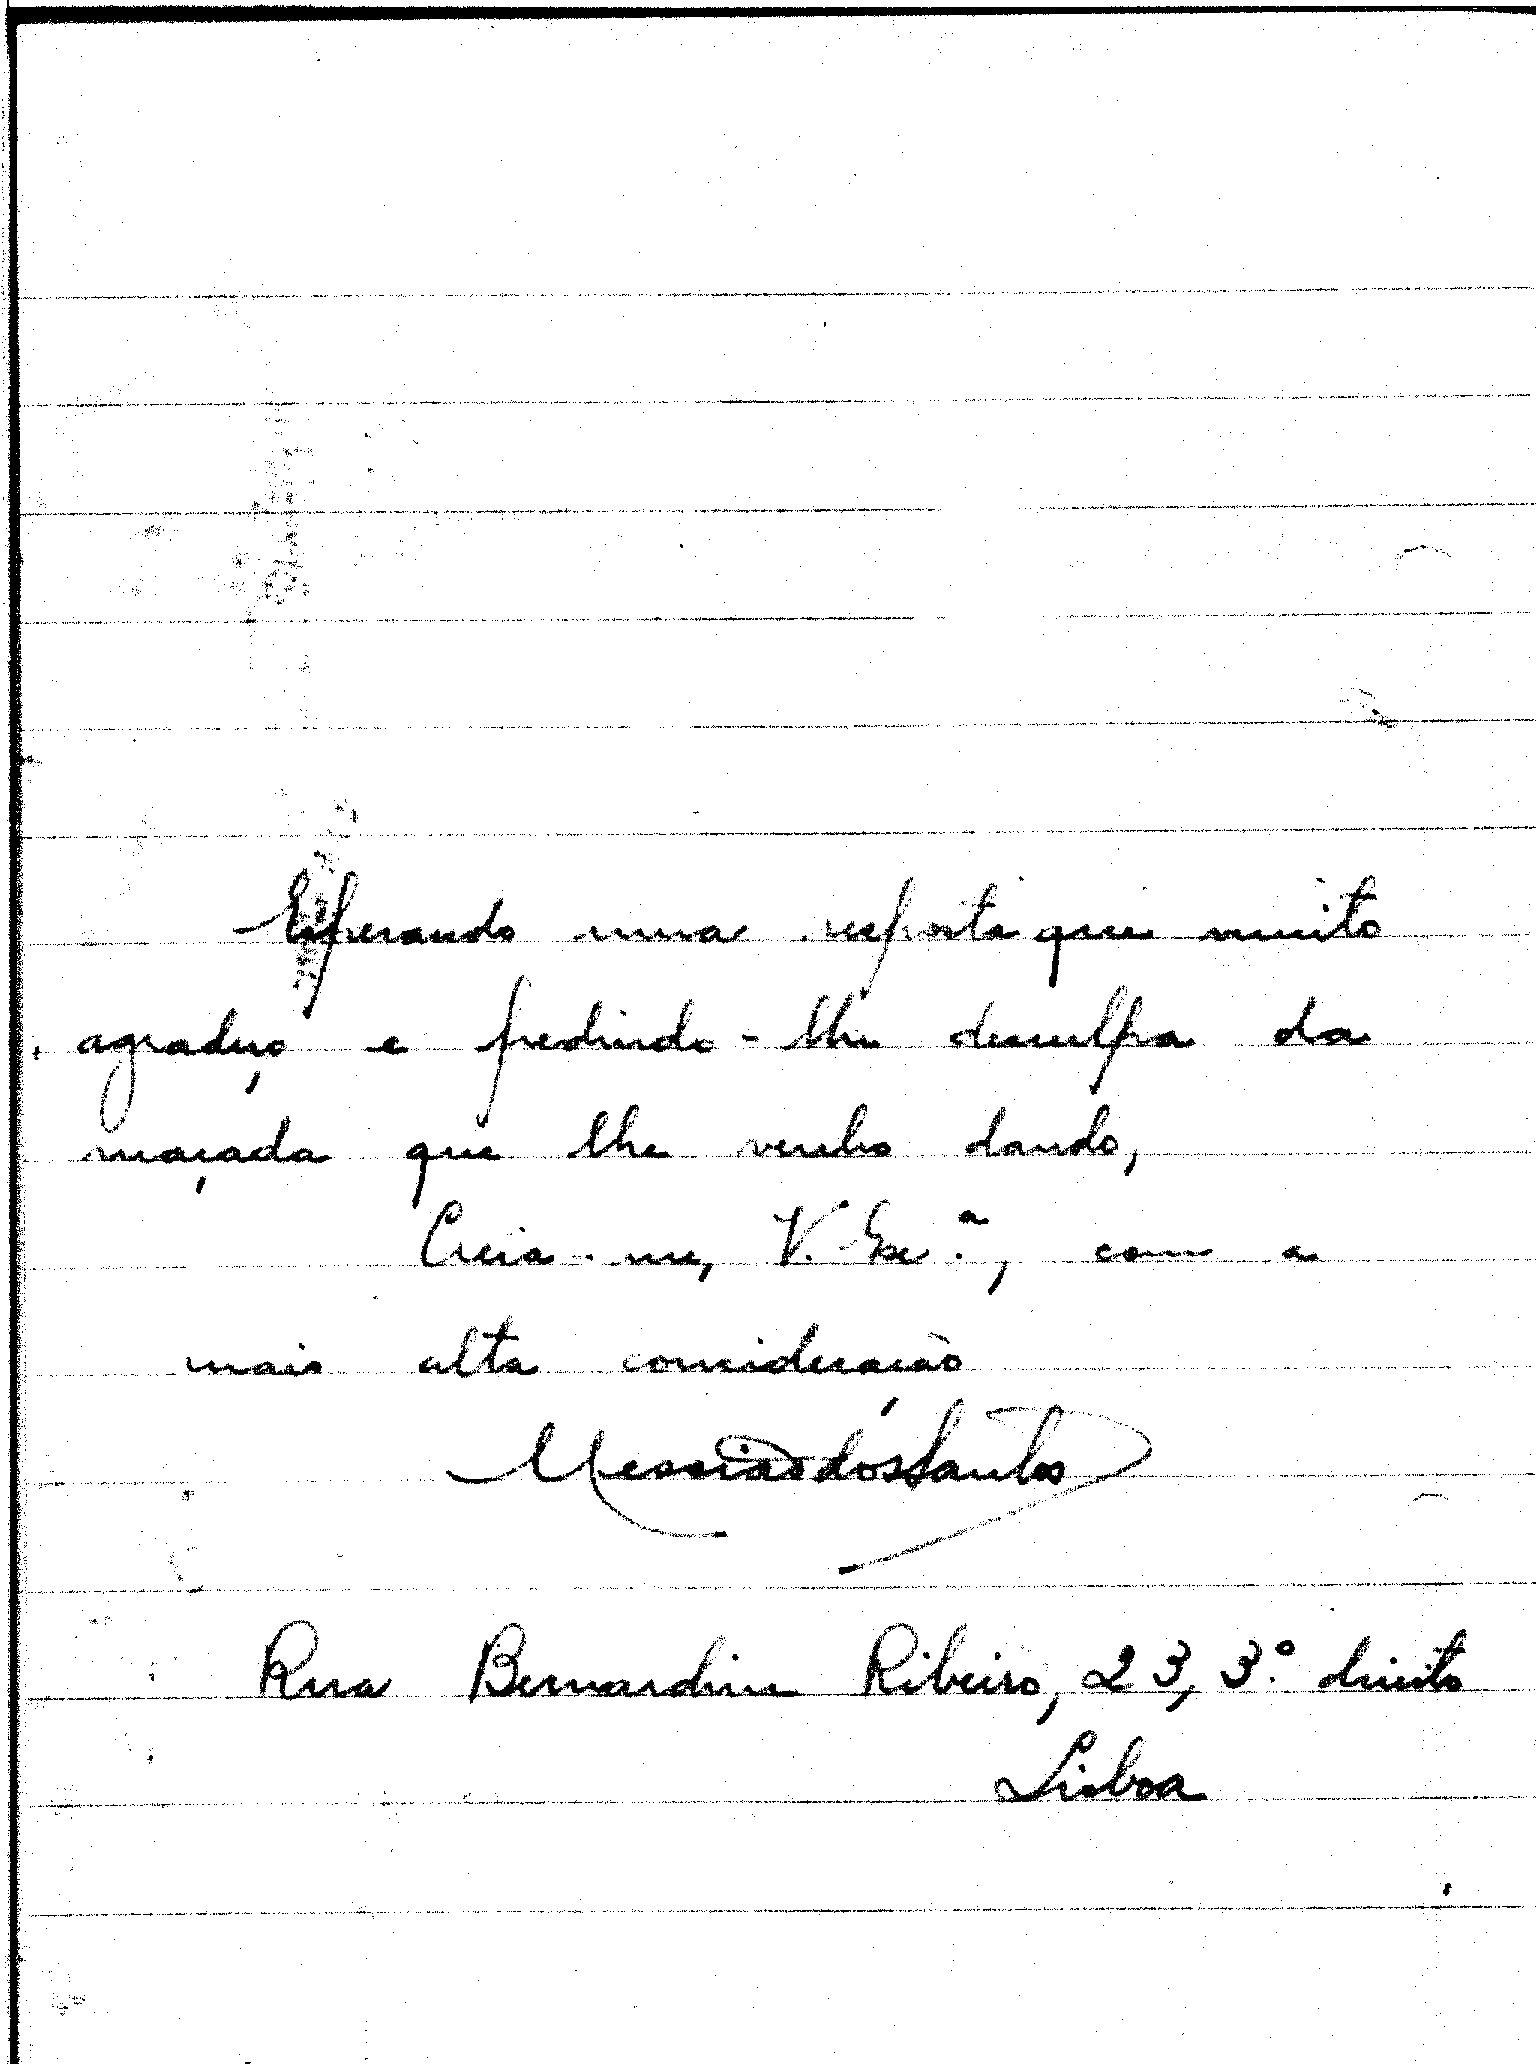 Esperando uma resposta que muito
agradeço e pedindo-lhe desculpa da
maçada que lhe venho dando,
Creia-me, V. Ex.ª, com a
mais alta consideração
Messias dos Santos
Rua Bernardim Ribeiro, 23, 3.º direito
Lisboa